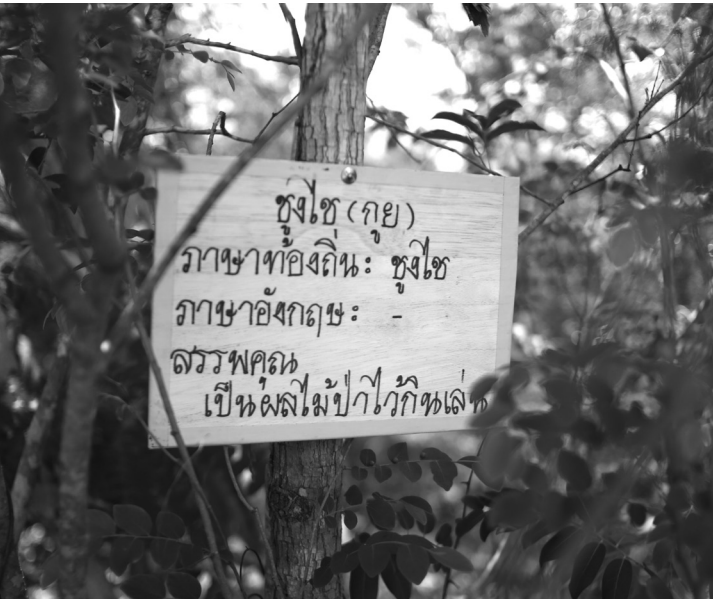 ชูงไช (กูย)
ภาษาท้องถิ่น: ชูงไช
ภาษาอังกฤษ: -
สรรพคุณ
เป็นผลไม้ป่าไว้กินเล่น